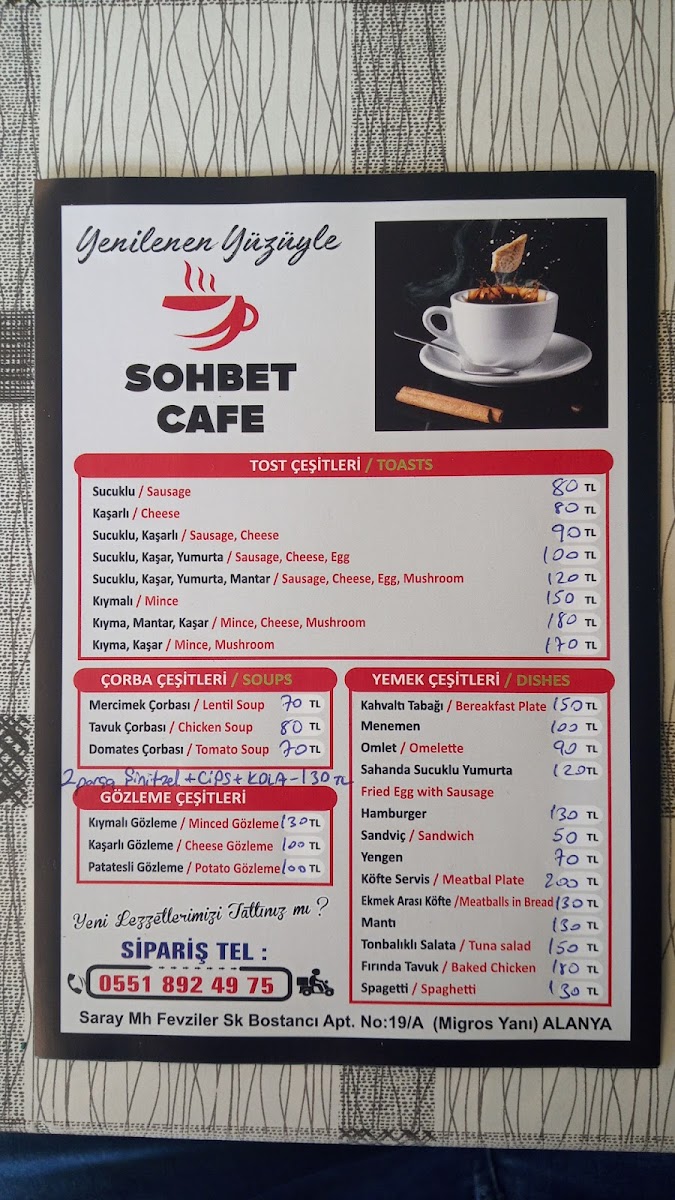 Yenilenen Yüzüyle
SOHBET
CAFE
TOST ÇEŞİTLERİ / TOASTS
Sucuklu / Sausage 80 TL
Kaşarlı / Cheese 80 TL
Sucuklu, Kaşarlı / Sausage, Cheese 90 TL
Sucuklu, Kaşar, Yumurta / Sausage, Cheese, Egg 100 TL
Sucuklu, Kaşar, Yumurta, Mantar / Sausage, Cheese, Egg, Mushroom 120 TL
Kıymalı / Mince 150 TL
Kıyma, Mantar, Kaşar / Mince, Cheese, Mushroom 180 TL
Kıyma, Kaşar / Mince, Mushroom 170 TL
ÇORBA ÇEŞİTLERİ / SOUPS
Mercimek Çorbası / Lentil Soup 70 TL
Tavuk Çorbası / Chicken Soup 80 TL
Domates Çorbası / Tomato Soup 70 TL
2 parça Şinitzel + CiPS + KOLA - 130 TL
GÖZLEME ÇEŞİTLERİ
Kıymalı Gözleme / Minced Gözleme 130 TL
Kaşarlı Gözleme / Cheese Gözleme 100 TL
Patatesli Gözleme / Potato Gözleme 100 TL
YEMEK ÇEŞİTLERİ / DISHES
Kahvaltı Tabağı / Bereakfast Plate 150 TL
Menemen 100 TL
Omlet / Omelette 90 TL
Sahanda Sucuklu Yumurta 120 TL
Fried Egg with Sausage
Hamburger 130 TL
Sandviç / Sandwich 50 TL
Yengen 70 TL
Köfte Servis / Meatbal Plate 200 TL
Ekmek Arası Köfte /Meatballs in Bread 130 TL
Mantı 130 TL
Tonbalıklı Salata / Tuna salad 150 TL
Fırında Tavuk / Baked Chicken 180 TL
Spagetti / Spaghetti 130 TL
Yeni Lezzetlerimizi Tattınız mı ?
SİPARİŞ TEL :
0551 892 49 75
Saray Mh Fevziler Sk Bostancı Apt. No:19/A (Migros Yanı) ALANYA